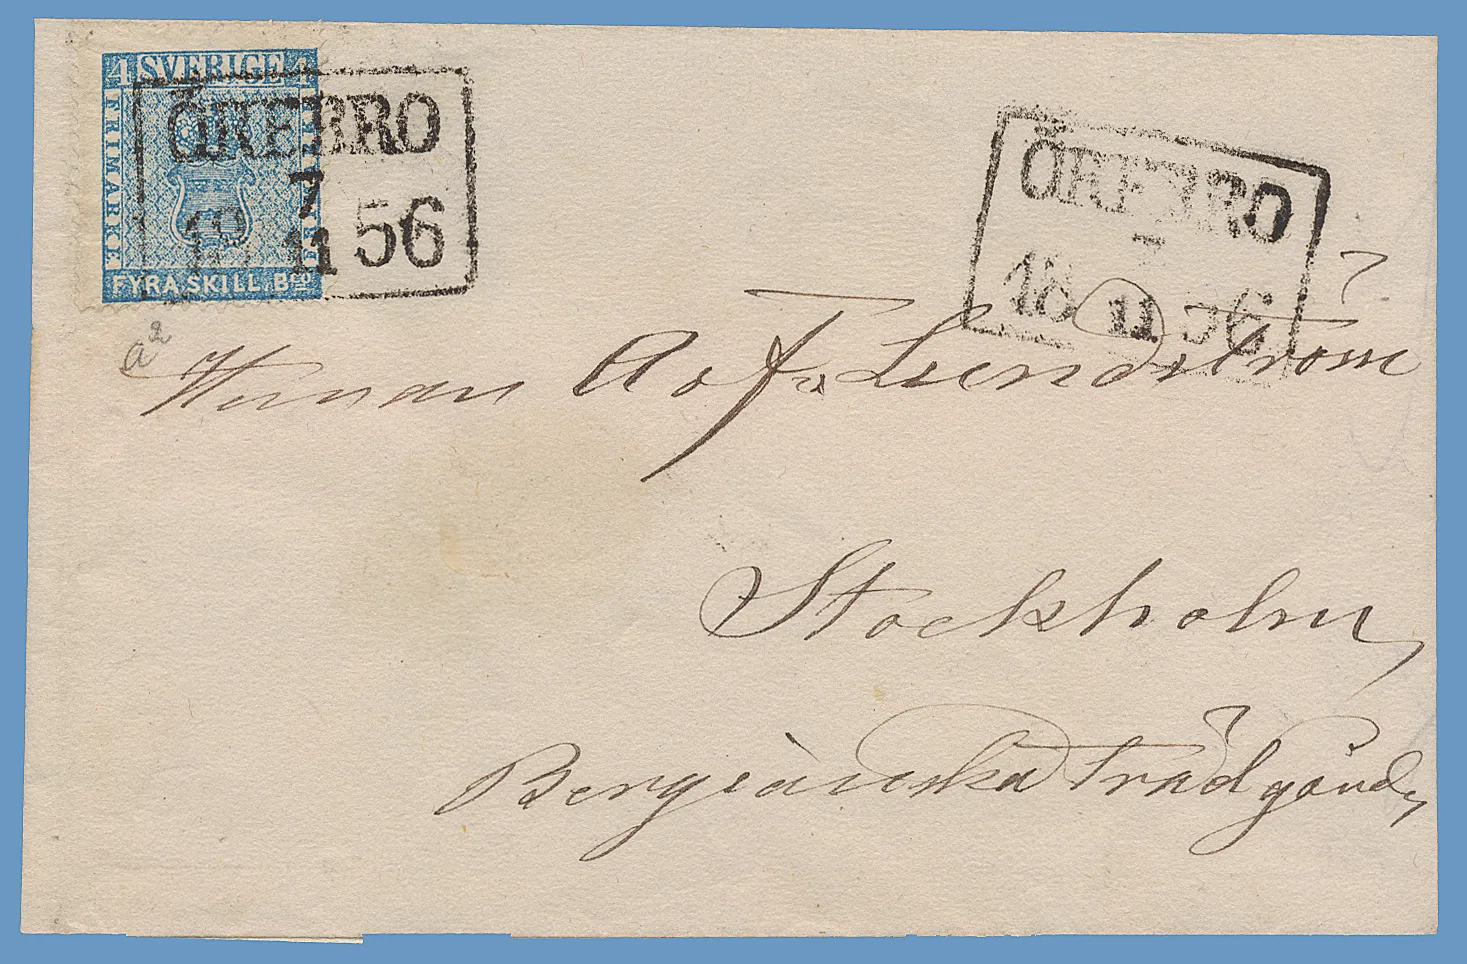 4 SVERIGE 4
FRIMÄRKE
FYRA SKILL. BCO
ÖREBRO
7
18 11 56
ÖREBRO
7
18 11 56
a2
Lundström
Stockholm,
Bergianska trädgård,